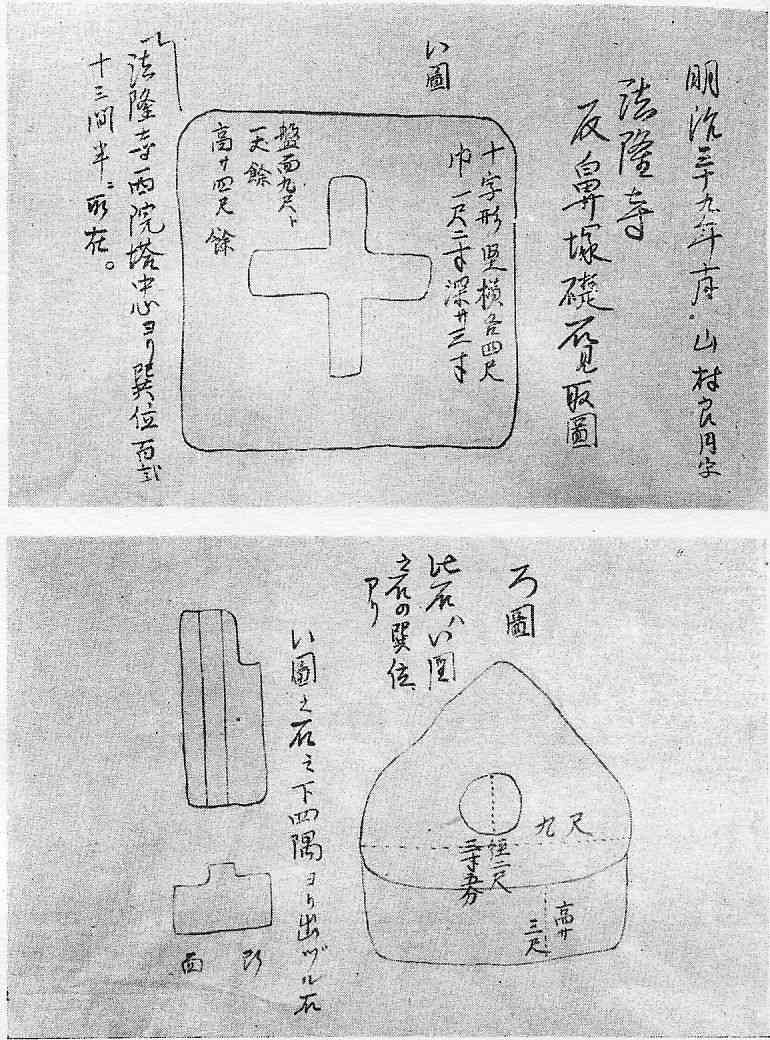 明治三十九年十月 山村良円写
法隆寺
反鼻塚礎石見取圖
い圖
十字形竪横各四尺
巾一尺二寸深サ三寸
盤面九尺ト
一丈餘
高サ四尺餘
法隆寺西院塔中心ヨリ巽位百弐
十三間半ニ所在。
ろ圖
此石ハい圖
之石の巽位
アリ
九尺
径二尺
三寸五分
高サ
三尺
い圖之石之下四隅ヨリ出ヅル石
断面